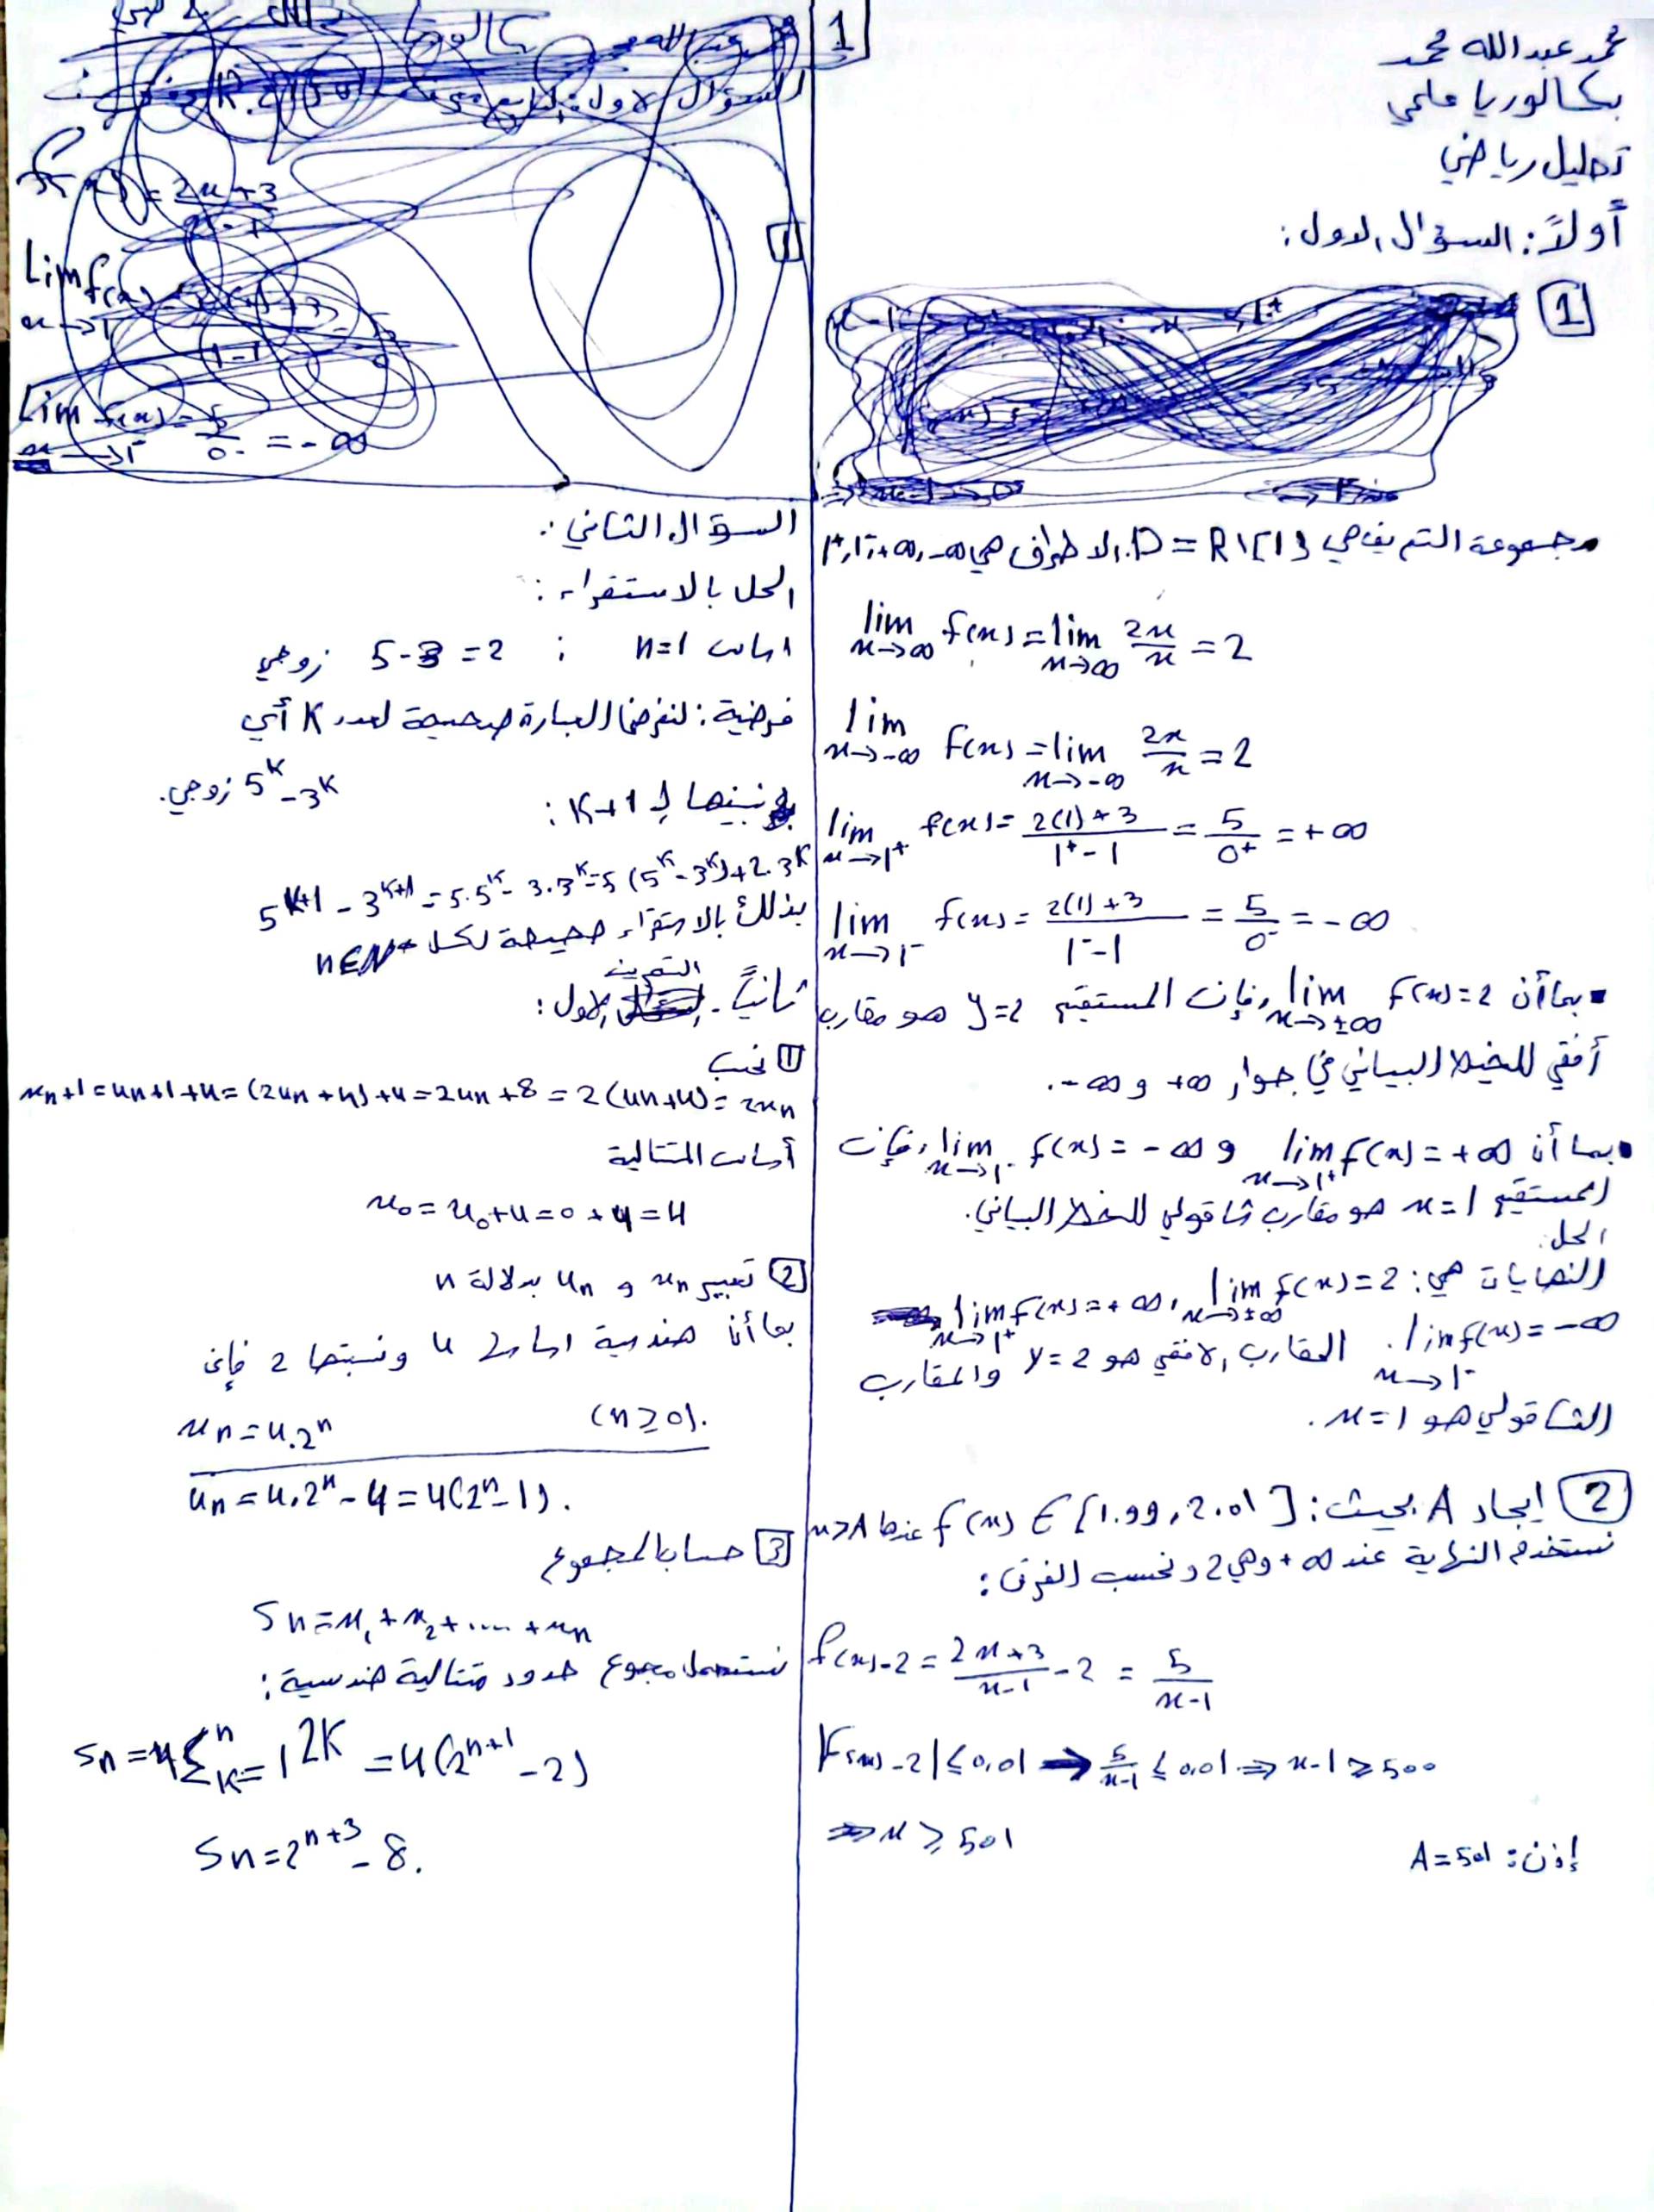 محمد عبدالله محمد
بكالوريا علمي
تحليل رياضي
أولاً: السؤال الاول:
1
مجموعة التعريف هي D = R\{1} الاطراف هي 1+, 1-, +∞, -∞
lim x→∞ f(x) = lim x→∞ 2x/x = 2
lim x→-∞ f(x) = lim x→-∞ 2x/x = 2
lim x→1+ f(x) = 2(1)+3 / 1+ - 1 = 5/0+ = +∞
lim x→1- f(x) = 2(1)+3 / 1- - 1 = 5/0- = -∞
▪ بما أن lim x→±∞ f(x) = 2، فإن المستقيم y=2 هو مقارب
أفقي للخط البياني في جوار +∞ و -∞.
• بما أن lim x→1+ f(x) = +∞ و lim x→1- f(x) = -∞، فإن
المستقيم x=1 هو مقارب شاقولي للخط البياني.
الحل:
النهايات هي: lim x→±∞ f(x) = 2، lim x→1+ f(x) = +∞،
lim x→1- f(x) = -∞. المقارب الافقي هو y=2 والمقارب
الشاقولي هو x=1.
2 ايجاد A بحيث: f(x) ∈ [1.99, 2.01] عندما x>A
نستخدم النهاية عند +∞ وهي 2 ونحسب الفرق:
f(x)-2 = 2x+3/x-1 - 2 = 5/x-1
|f(x)-2| ≤ 0,01 ⇒ 5/x-1 ≤ 0,01 ⇒ x-1 ≥ 500
⇒ x ≥ 501
إذن: A=501
1
السؤال الاول:
lim f(x)
x→1
Lim f(x) = 5/0- = -∞
x→1-
السؤال الثاني:
الحل بالاستقراء:
اساس n=1 : 5-3=2 زوجي
فرضية: لنفرض العبارة صحيحة لعدد K أي
5^K - 3^K زوجي.
نبينها لـ K+1:
5^K+1 - 3^K+1 = 5.5^K - 3.3^K = 5(5^K - 3^K) + 2.3^K
بذلك بالاستقراء صحيحة لكل n∈N*
ثانياً - التمرين الاول:
1 نحسب
xn+1 = un+1+4 = (2un+4)+4 = 2un+8 = 2(un+4) = 2xn
أساس المتتالية
x0 = u0+4 = 0+4 = 4
2 تعبير xn و un بدلالة n
بما أن هندسية اساسها 4 ونسبتها 2 فإن
xn = 4.2^n (n≥0).
un = 4.2^n - 4 = 4(2^n - 1).
3 حساب المجموع
Sn = x1 + x2 + .... + xn
نستعمل مجموع حدود متتالية هندسية:
Sn = 4 Σ^n K=1 2K = 4(2^n+1 - 2)
Sn = 2^n+3 - 8.